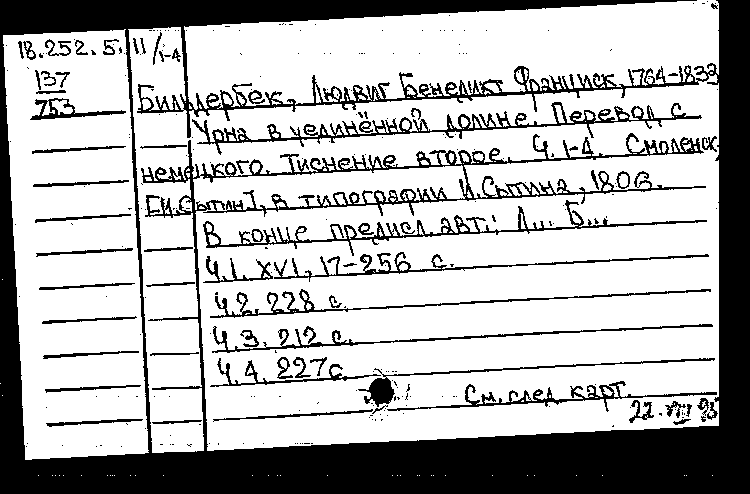 18.252.5. II/1-4
137
753
Бильдербек, Людвиг Бенедикт Франциск, 1764-1833
Урна в уединённой долине. Перевод с
немецкого. Тиснение второе. Ч. 1-4. Смоленск,
[И. Сытин], в типографии И. Сытина, 1806.
В конце предисл. авт.: Л... Б...
Ч.1. XVI, 17-256 с.
Ч.2. 228 с.
Ч.3. 212 с.
Ч.4. 227 с.
См. след. карт.
22.VIII 95